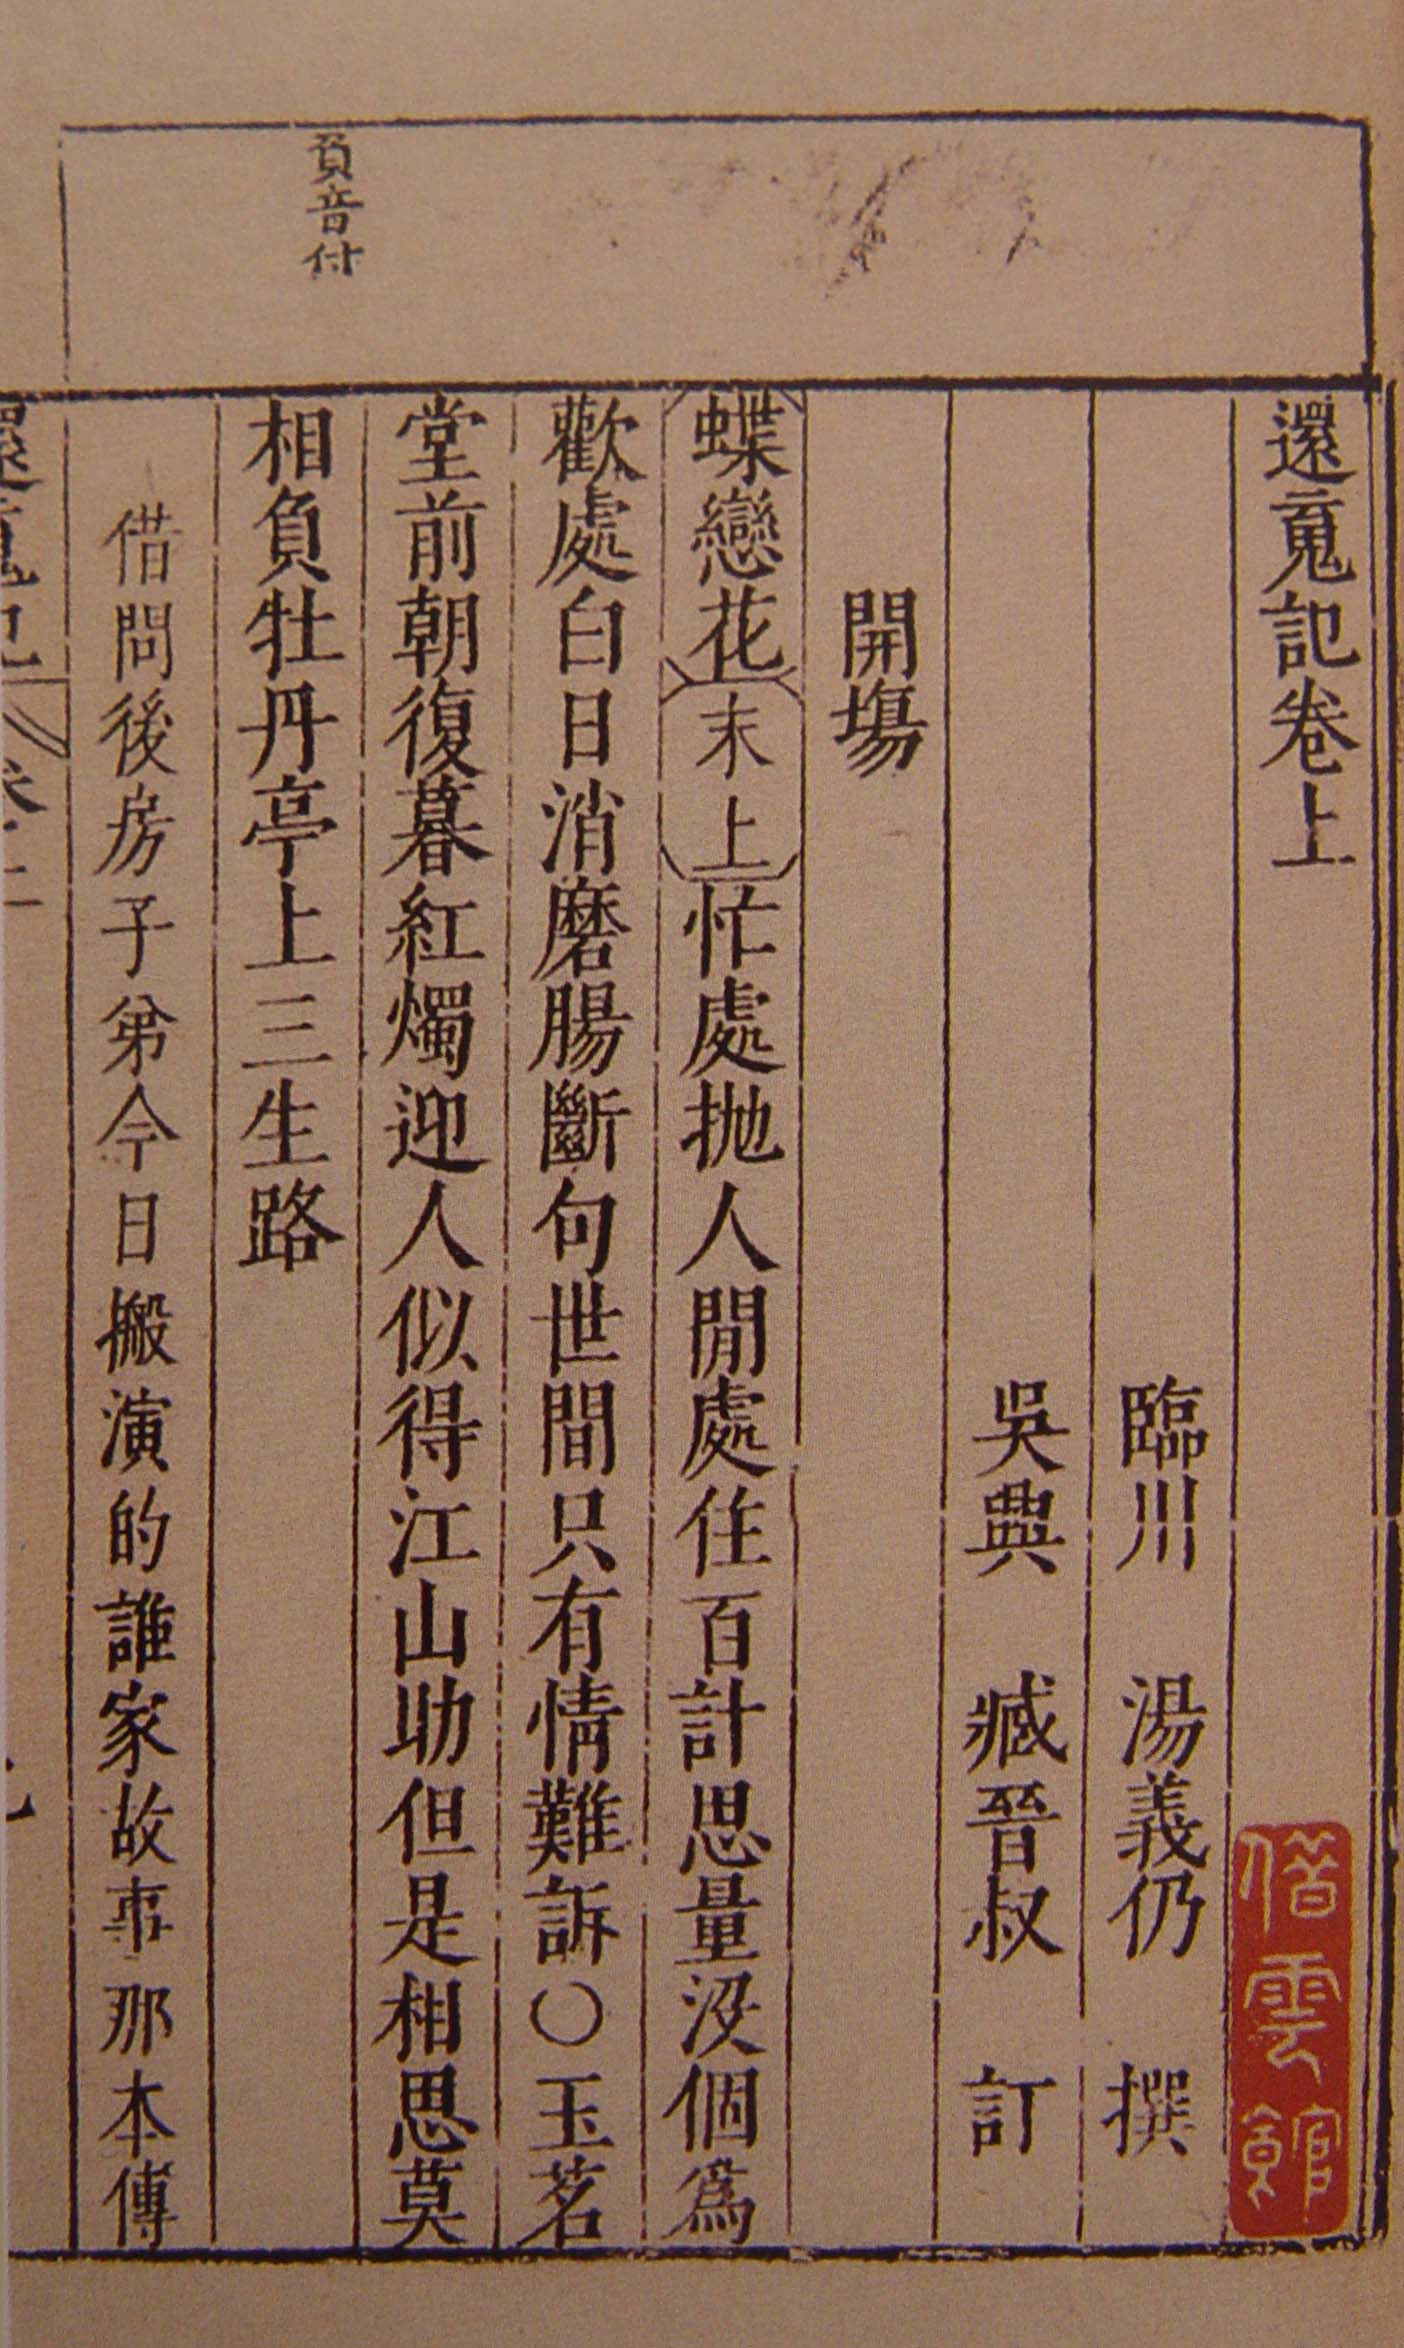 還魂記卷上
臨川 湯義仍 撰
吳興 臧晉叔 訂
開場
蝶戀花 末上 忙處拋人閒處住百計思量沒個爲
歡處白日消磨腸斷句世間只有情難訴○玉茗
堂前朝復暮紅燭迎人似得江山助但是相思莫
相負牡丹亭上三生路
負音付
借問後房子弟今日搬演的誰家故事那本傳
借雲館